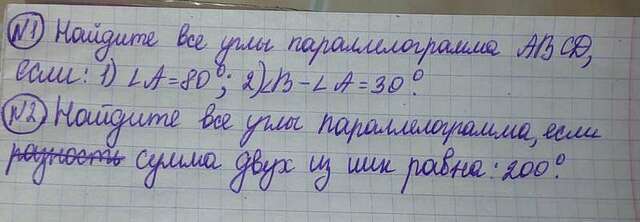 №1 Найдите все углы параллелограмма ABCD,
если: 1) ∠A=80°; 2) ∠B-∠A=30°.
№2 Найдите все углы параллелограмма, если
разность сумма двух из них равна: 200°.